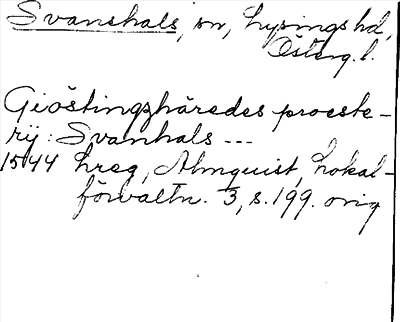 Svanshals, sn, Lysings hd,
Österg. l.
Giöstingzhäredes proeste-
rij: Svanhals ---
1544 hreg, Almquist, Lokal-
förvaltn. 3, s. 199. orig